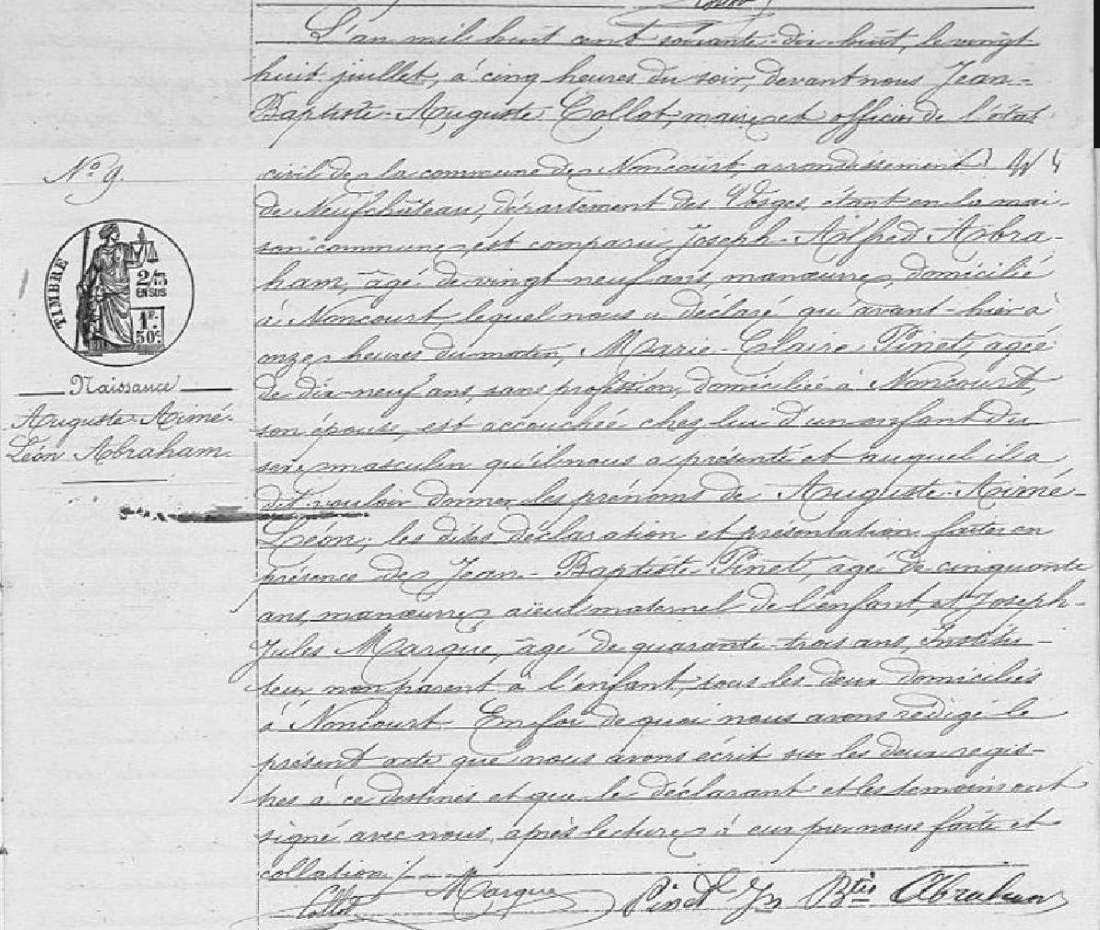 L'an mil huit cent soixante-dix-huit, le vingt
huit juillet, à cinq heures du soir, devant nous Jean-
Baptiste-Auguste Collot, maire et officier de l'état
civil de la commune de Noncourt, arrondissement
de Neufchâteau, département des Vosges, étant en la mai-
son commune, est comparu Joseph-Alfred Abra-
ham, âgé de vingt-neuf ans, manœuvre, domicilié
à Noncourt lequel nous a déclaré qu'avant-hier à
onze heures du matin, Marie-Claire Pinet, âgée
de dix-neuf ans, sans profession, domiciliée à Noncourt,
son épouse, est accouchée chez lui d'un enfant du
sexe masculin qu'il nous a présenté et auquel il a
dit vouloir donner les prénoms de Auguste-Aimé-
Léon; les dites déclaration et présentation faites en
présence de Jean-Baptiste Pinet, âgé de cinquante
ans, manœuvre, aïeul maternel de l'enfant, et Joseph-
Jules Marque, âgé de quarante-trois ans, institu-
teur non parent à l'enfant, tous les deux domiciliés
à Noncourt. En foi de quoi nous avons rédigé le
présent acte que nous avons écrit sur les deux regis-
tres à ce destinés et que le déclarant et les témoins ont
signé avec nous, après lecture à eux par nous faite et
collation ./.
Collot Marque Pinet Jn Btie Abraham
No 9.
TIMBRE
2/10
EN SUS
1F.
50c.
Naissance
Auguste-Aimé-
Léon Abraham.